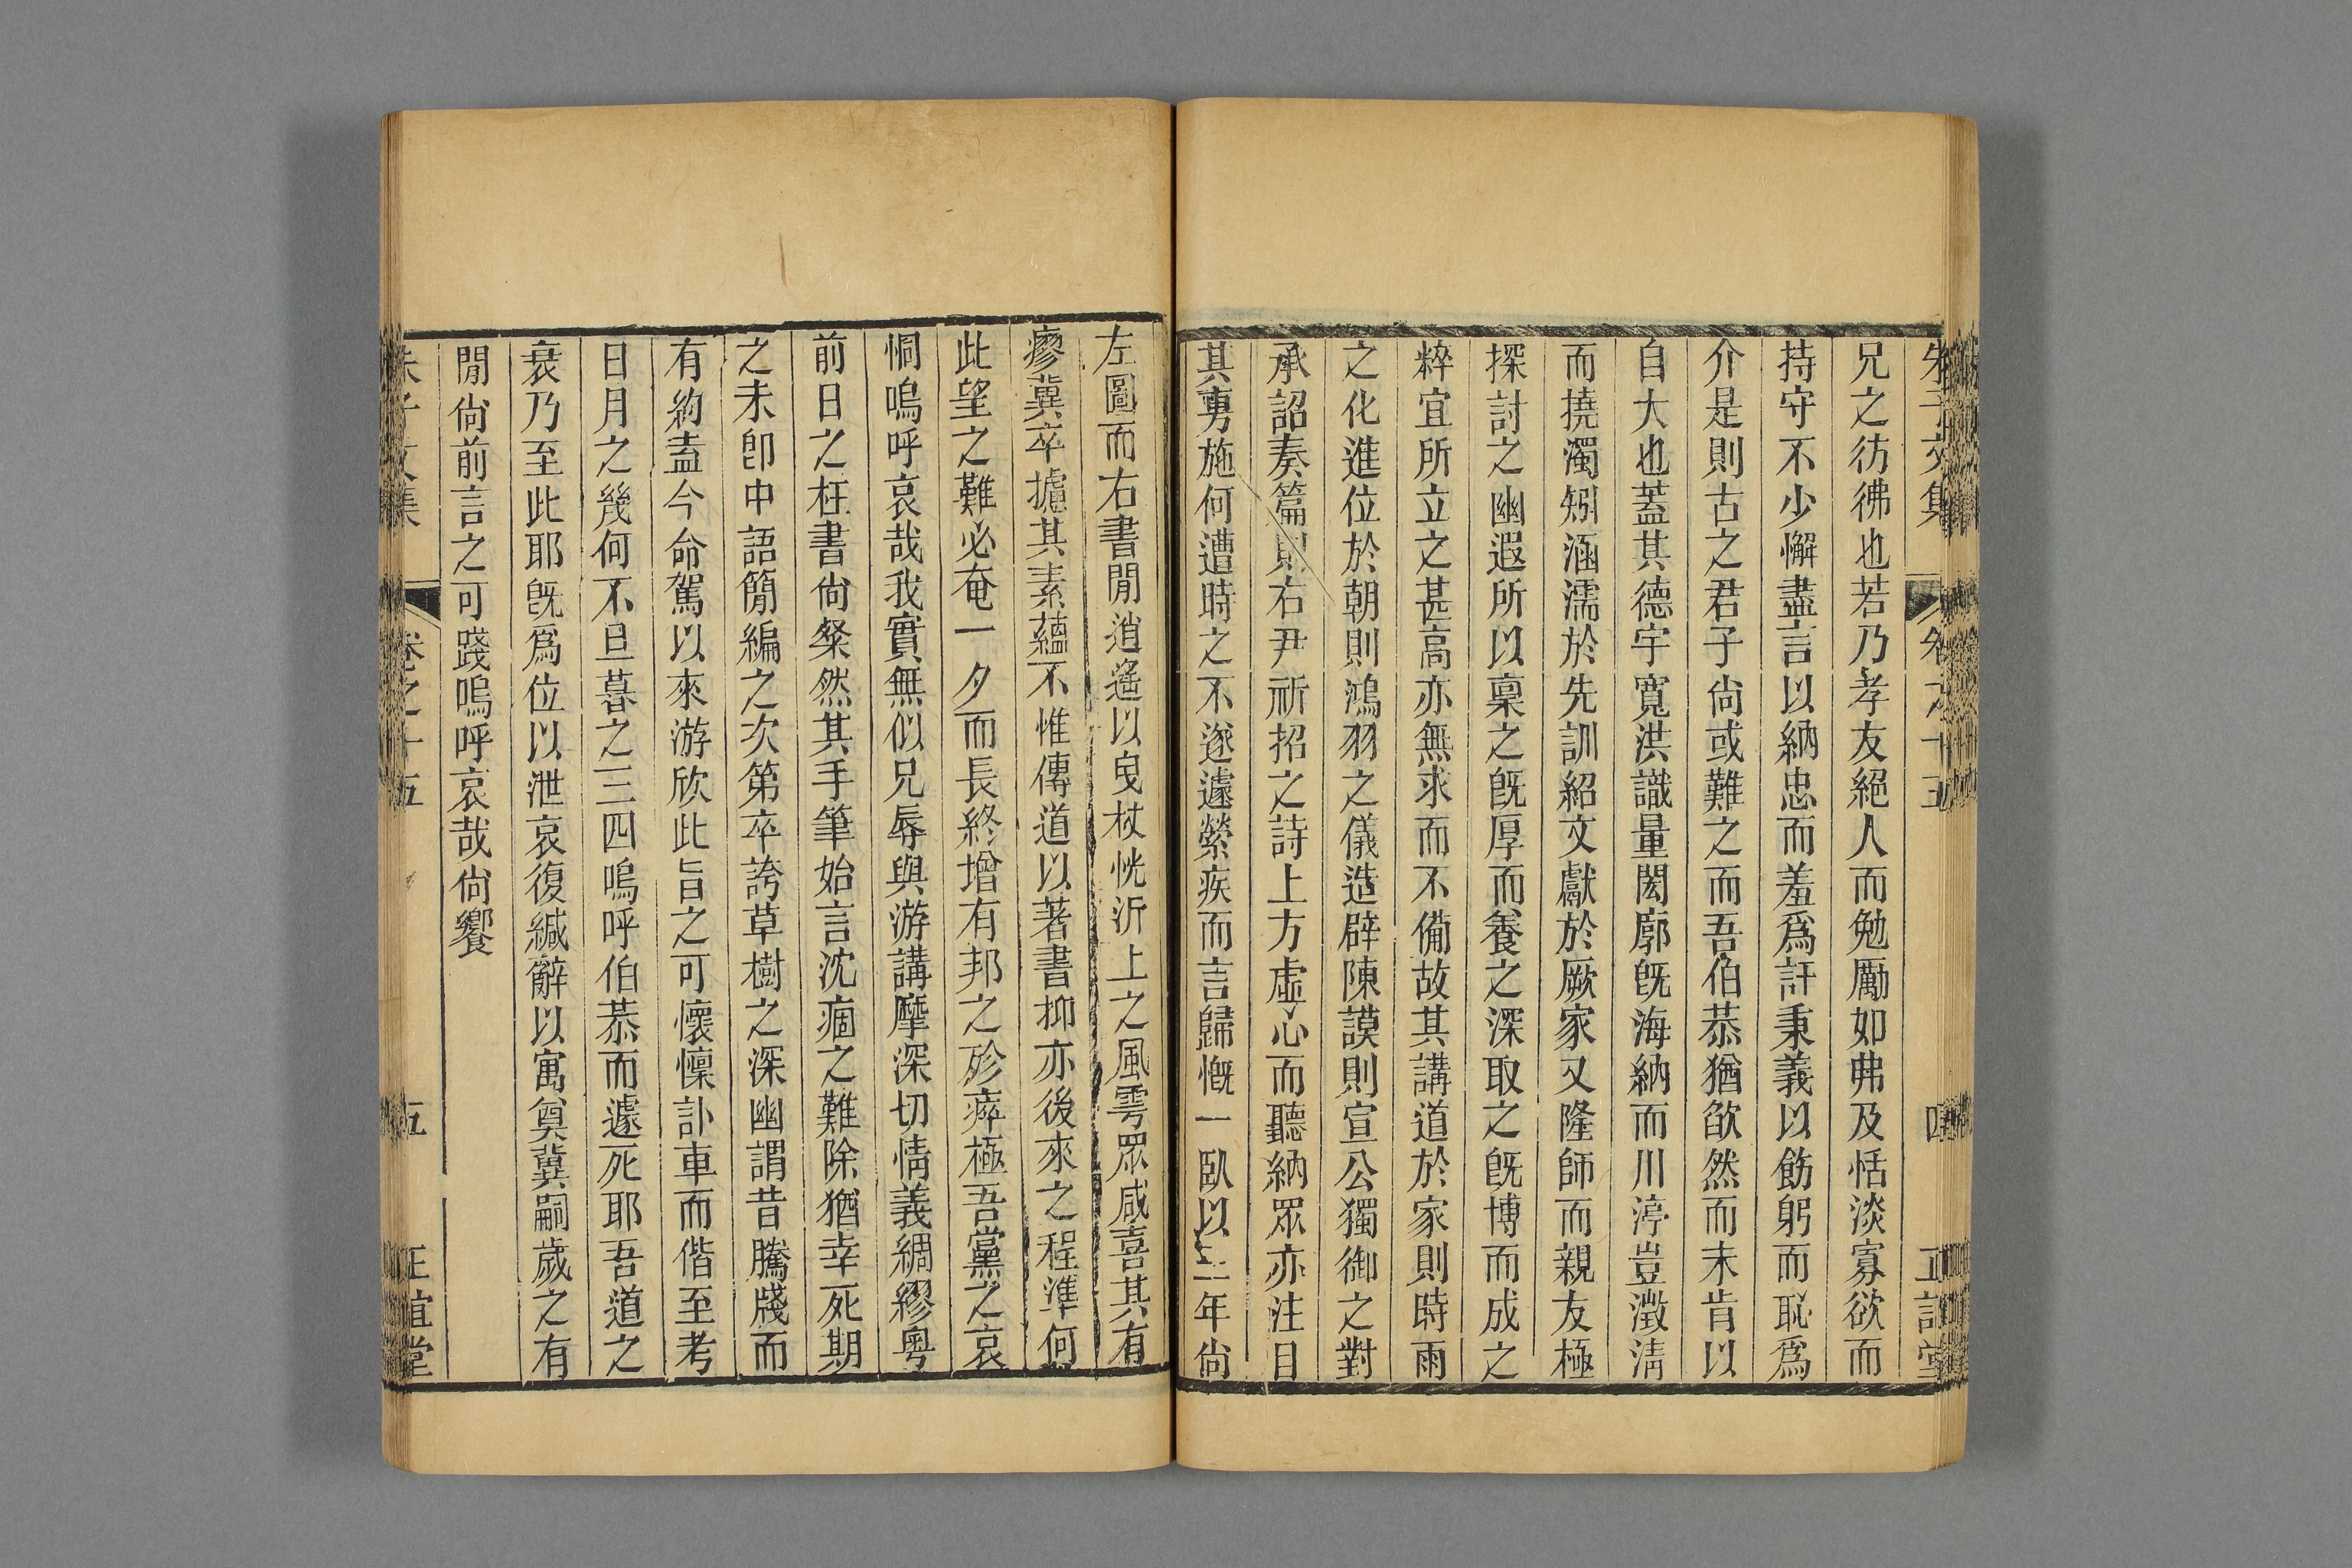 朱子文集 卷之十五 四 正誼堂
兄之彷彿也若乃孝友絕人而勉厲如弗及恬淡寡欲而
持守不少懈盡言以納忠而羞爲訐秉義以飭躬而恥爲
介是則古之君子尙或難之而吾伯恭猶欿然而未肯以
自大也蓋其德宇寬洪識量閎廓旣海納而川渟豈澂淸
而撓濁矧涵濡於先訓紹文獻於厥家又隆師而親友極
探討之幽遐所以稟之旣厚而養之深取之旣博而成之
粹宜所立之甚高亦無求而不備故其講道於家則時雨
之化進位於朝則鴻羽之儀造辟陳謨則宣公獨御之對
承詔奏篇則右尹祈招之詩上方虛心而聽納眾亦注目
其勇施何遭時之不遂遽縈疾而言歸慨一臥以三年尙
左圖而右書閒逍遙以曳杖恍沂上之風雩眾咸喜其有
瘳冀卒攄其素蘊不惟傳道以著書抑亦後來之程準何
此望之難必奄一夕而長終增有邦之殄瘁極吾黨之哀
恫嗚呼哀哉我實無似兄辱與游講摩深切情義綢繆粵
前日之枉書尙粲然其手筆始言沈痼之難除猶幸死期
之未卽中語簡編之次第卒誇草樹之深幽謂昔騰牋而
有約盍今命駕以來游欣此旨之可懷懍訃車而偕至考
日月之幾何不旦暮之三四嗚呼伯恭而遽死耶吾道之
衰乃至此耶旣爲位以泄哀復緘辭以寓奠冀嗣歲之有
閒尙前言之可踐嗚呼哀哉尙饗
朱子文集 卷之十五 五 正誼堂